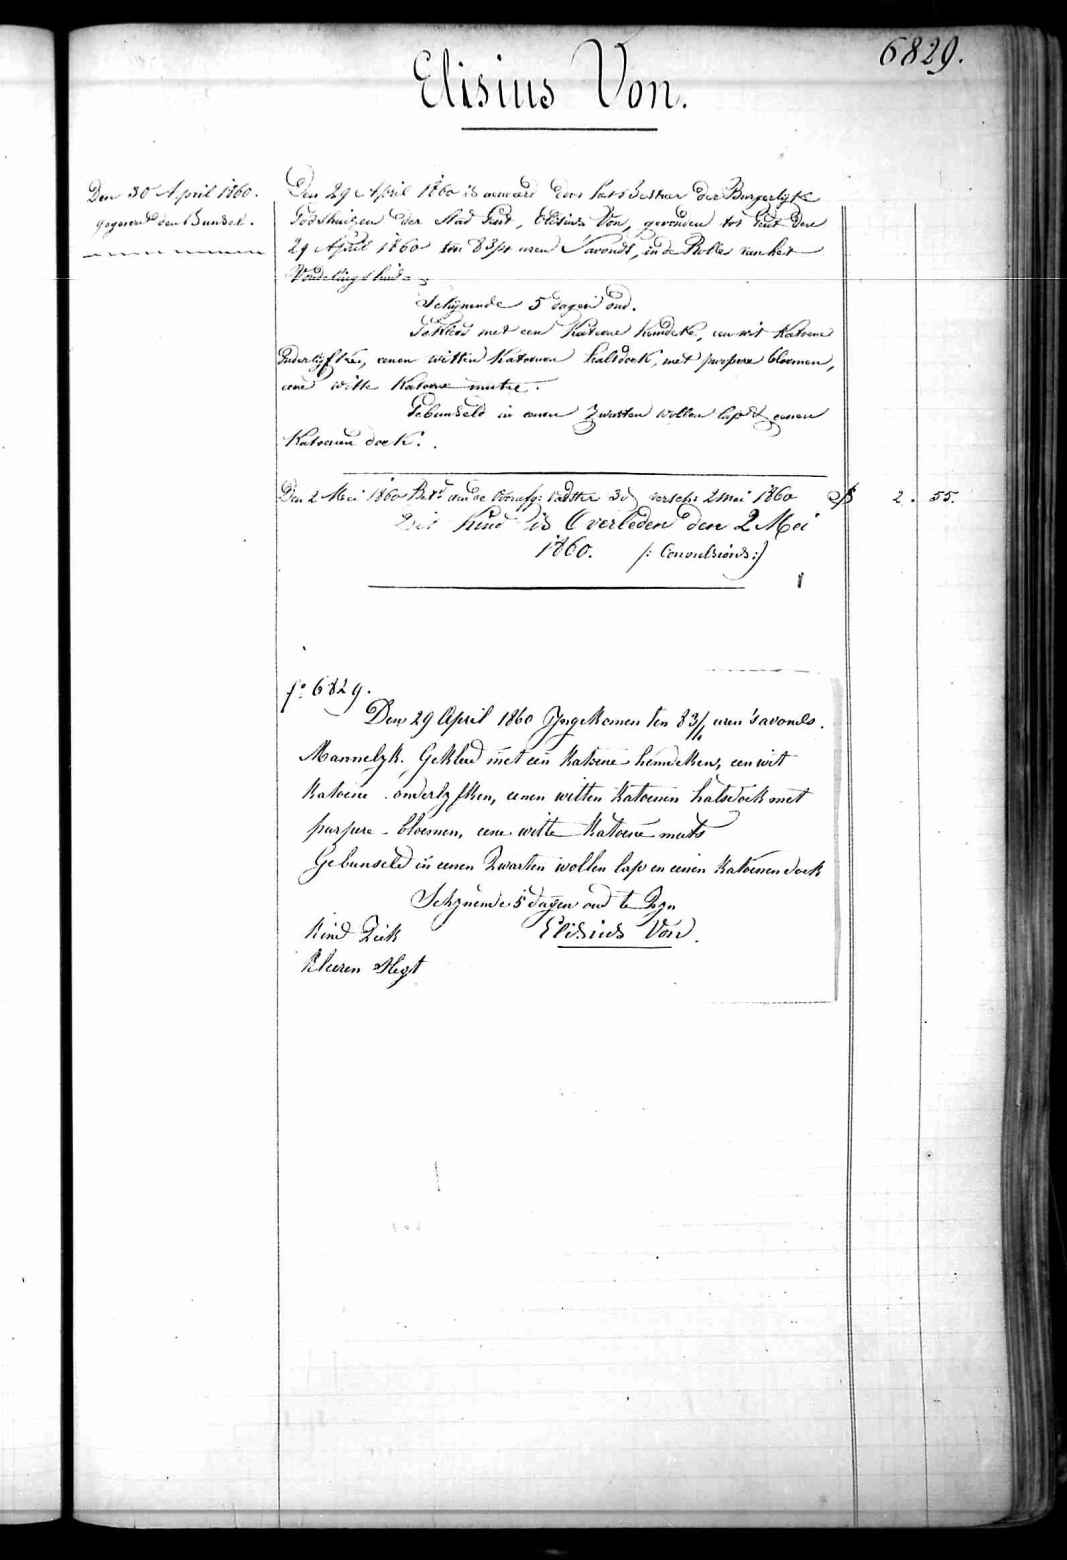 6829.
Elisius Von.
Den 30 April 1860.
gegeven den Bundel.
Den 29 April 1860 is aenveerd door het Bestuer der Burgerlyke
Godshuizen der Stad Gent, Elisius Von, gevonden tot Gent den
29 April 1860 ten 8 3/4 uren S'avonds, in de Rolle van het
Vondelingshuis
Schynende 5 dagen oud.
Gekleed met een Katoene hemdeke, een wit Katoene
onderlyfken, eenen witten Katoenen halsdoek, met purpere bloemen,
eene witte Katoene mutse.
Gebunseld in eenen Zwarten wollen lap & eenen
Katoenen doek.
Den 2 Mei 1860 Bet. aen de 3 2 mei 1860 2 . 55.
Dit Kind is Overleden den 2 Mei
1860. /: Convulsions :/
f° 6829.
Den 29 April 1860 Yngekomen ten 8 3/4 uren 's avonds.
Mannelyk. Gekleed met een katoene hemdeken, een wit
katoene onderlyfken, eenen witten Katoenen halsdoek met
purpure bloemen, eene witte Katoene muts
Gebunseld in eenen Zwarten wollen lap en eenen Katoenen doek
Schynende 5 dagen oud te Zyn
Kind Ziek Elisius Von.
Kleeren Slegt